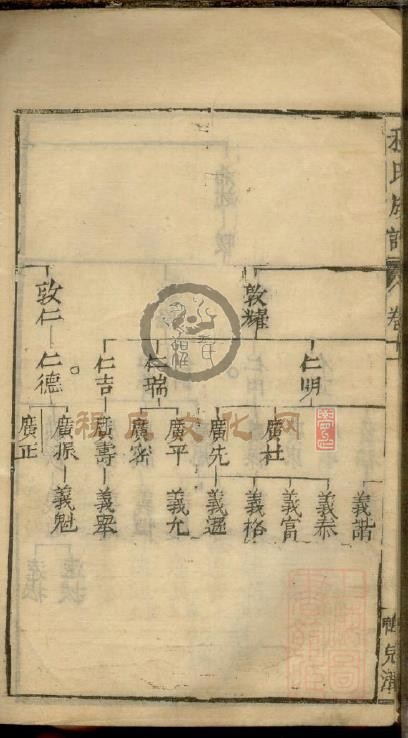 氏族譜
卷十
敦耀
敦仁
仁明
仁瑞
仁吉
仁德
廣杜
廣先
廣平
廣密
廣壽
廣振
廣正
義諧
義泰
義富
義格
義遜
義允
義舉
義魁
程氏文化网